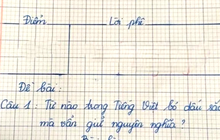 Điểm Lời phê
Đề bài:
Câu 1: Từ nào trong Tiếng Việt bỏ dấu sắc
mà vẫn giữ nguyên nghĩa?